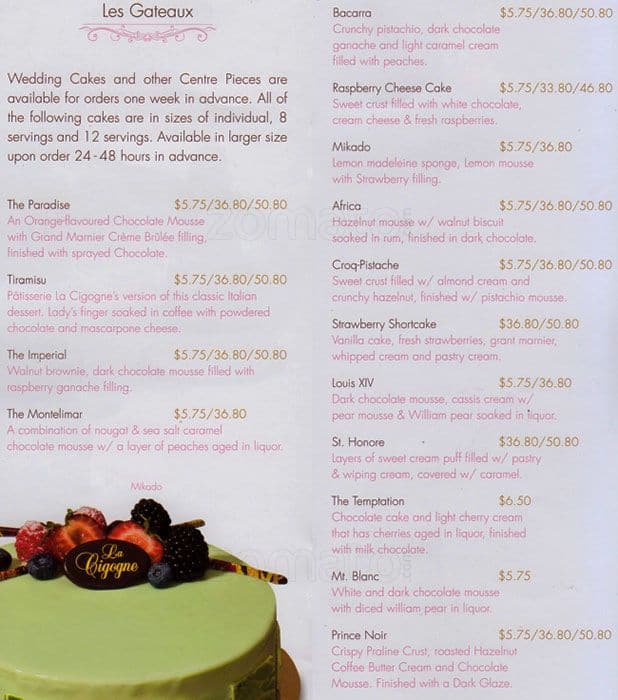 Les Gateaux
Wedding Cakes and other Centre Pieces are
available for orders one week in advance. All of
the following cakes are in sizes of individual, 8
servings and 12 servings. Available in larger size
upon order 24-48 hours in advance.
The Paradise $5.75/36.80/50.80
An Orange-flavoured Chocolate Mousse
with Grand Marnier Crème Brûlée filling,
finished with sprayed Chocolate.
Tiramisu $5.75/36.80/50.80
Pâtisserie La Cigogne's version of this classic Italian
dessert. Lady's finger soaked in coffee with powdered
chocolate and mascarpone cheese.
The Imperial $5.75/36.80/50.80
Walnut brownie, dark chocolate mousse filled with
raspberry ganache filling.
The Montelimar $5.75/36.80
A combination of nougat & sea salt caramel
chocolate mousse w/ a layer of peaches aged in liquor.
Mikado
La
Cigogne
Bacarra $5.75/36.80/50.80
Crunchy pistachio, dark chocolate
ganache and light caramel cream
filled with peaches.
Raspberry Cheese Cake $5.75/33.80/46.80
Sweet crust filled with white chocolate,
cream cheese & fresh raspberries.
Mikado $5.75/36.80
Lemon madeleine sponge, Lemon mousse
with Strawberry filling.
Africa $5.75/36.80/50.80
Hazelnut mousse w/ walnut biscuit
soaked in rum, finished in dark chocolate.
Croq-Pistache $5.75/36.80/50.80
Sweet crust filled w/ almond cream and
crunchy hazelnut, finished w/ pistachio mousse.
Strawberry Shortcake $36.80/50.80
Vanilla cake, fresh strawberries, grant marnier,
whipped cream and pastry cream.
Louis XIV $5.75/36.80
Dark chocolate mousse, cassis cream w/
pear mousse & William pear soaked in liquor.
St. Honore $36.80/50.80
Layers of sweet cream puff filled w/ pastry
& wiping cream, covered w/ caramel.
The Temptation $6.50
Chocolate cake and light cherry cream
that has cherries aged in liquor, finished
with milk chocolate.
Mt. Blanc $5.75
White and dark chocolate mousse
with diced william pear in liquor.
Prince Noir $5.75/36.80/50.80
Crispy Praline Crust, roasted Hazelnut
Coffee Butter Cream and Chocolate
Mousse. Finished with a Dark Glaze.
zomato
zomato